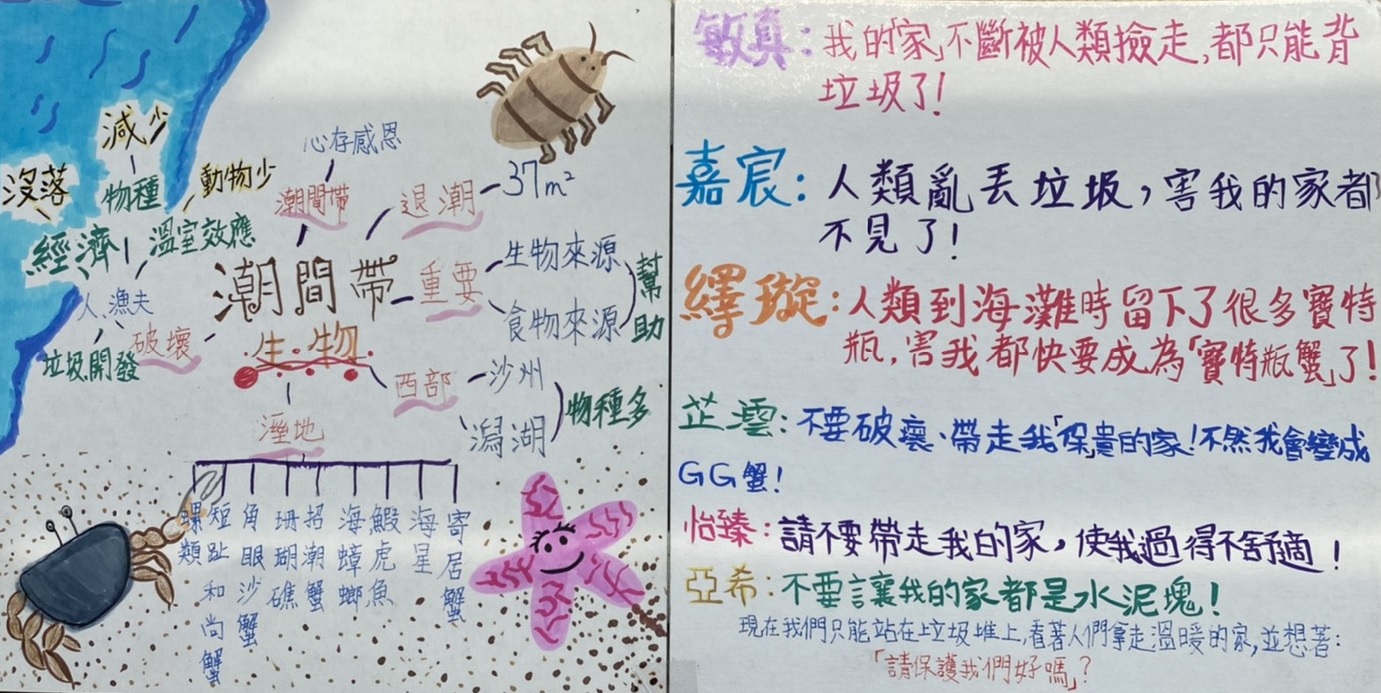 心存感恩
減少
動物少
沒落
物種
潮間帶
退潮
37m²
經濟
溫室效應
潮間帶
重要
生物來源
食物來源
幫助
人漁夫
垃圾開發
破壞
生物
西部
沙州
潟湖
物種多
溼地
螺類
短趾和尚蟹
角眼沙蟹
珊瑚礁
招潮蟹
海蟑螂
鰕虎魚
海星
寄居蟹
敏真:我的「家」不斷被人類撿走,都只能背
垃圾了!
嘉宸:人類亂丟垃圾,害我的家都
不見了!
繹璇:人類到海灘時留下了很多寶特
瓶,害我都快要成為「寶特瓶蟹」了!
芷澐:不要破壞、帶走我「保」貴的家!不然我會變成
GG蟹!
怡臻:請不要帶走我的家,使我過得不舒適!
亞希:不要讓我的家都是水泥塊!
現在我們只能站在垃圾堆上,看著人們拿走溫暖的家,並想著:
「請保護我們好嗎」?